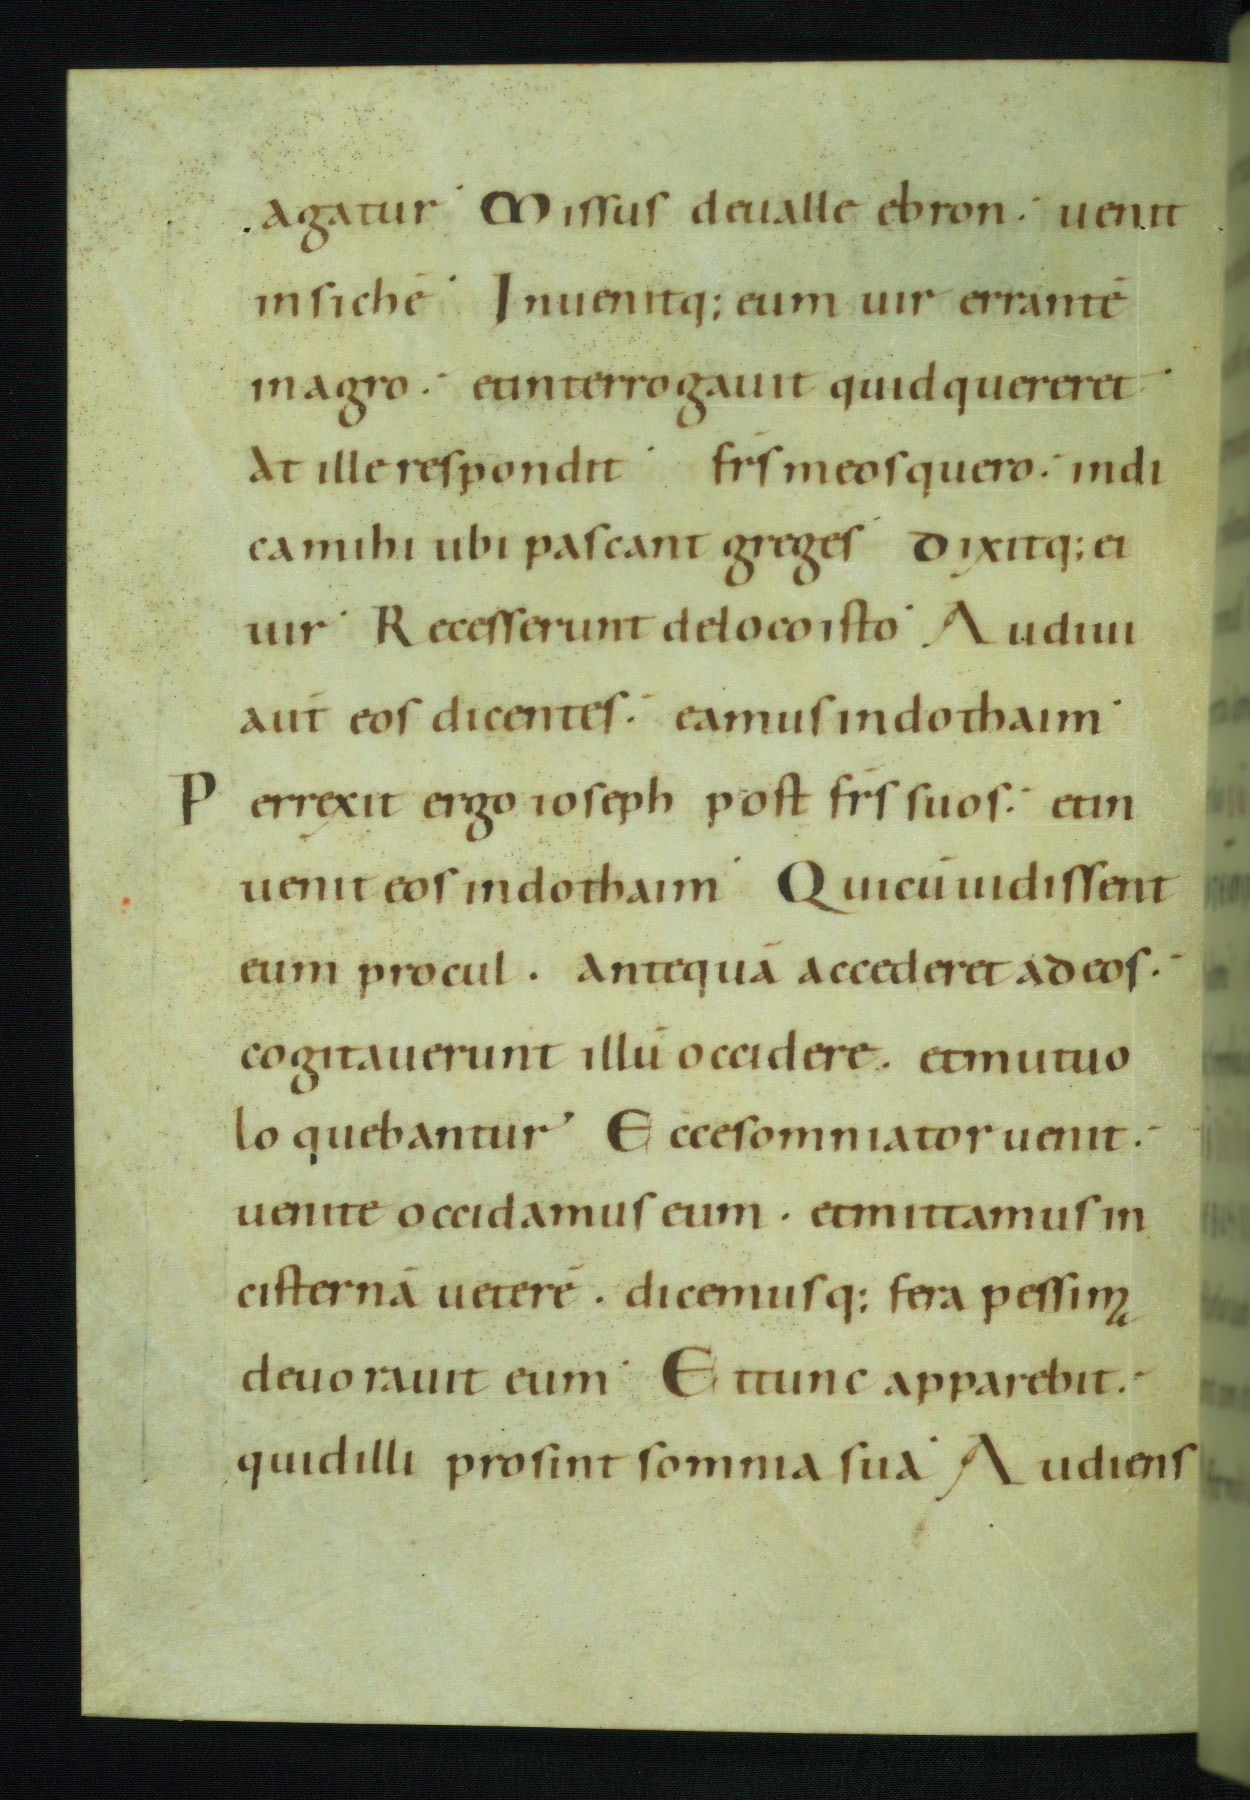 agatur Missus deualle ebron. uenit
insichē Inuenitq; eum uir errantē
inagro. etinterrogauit quidquereret
At ille respondit fr̄s meosquero. indi
camihi ubi pascant greges Dixitq; ei
uir Recesserunt delocoisto Audiui
aut̄ eos dicentes. eamusindothaim
Perrexit ergo ioseph post fr̄s suos. etin
uenit eos indothaim Quicū uidissent
eum procul. Antequā accederet adeos.
cogitauerunt illū occidere. etmutuo
loquebantur Eccesomniator uenit.
uenite occidamus eum. etmittamus in
cisternā ueterē. dicemusq; fera pessima
deuorauit eum Ettunc apparebit.
quidilli prosint somnia sua Audiens